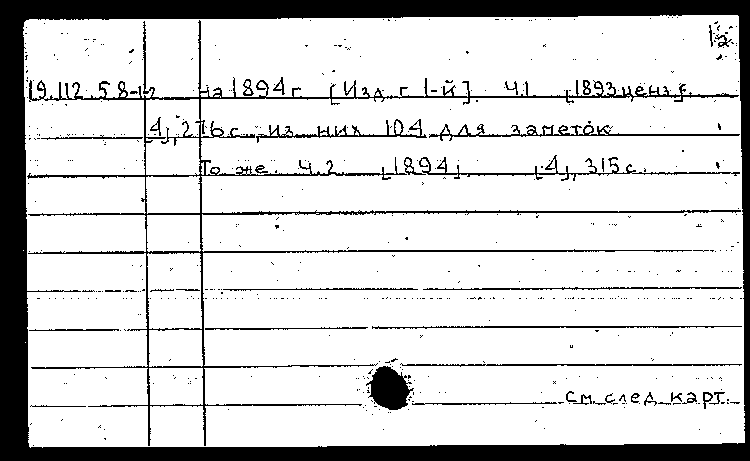 1а
19.112.5.8-1-2 На 1894 г. [Изд. г. 1-й]. Ч.1. [1893 ценз.].
[4], 276 с., из них 104 для заметок.
То же. Ч.2. [1894]. [4], 315 с.
См. след. карт.